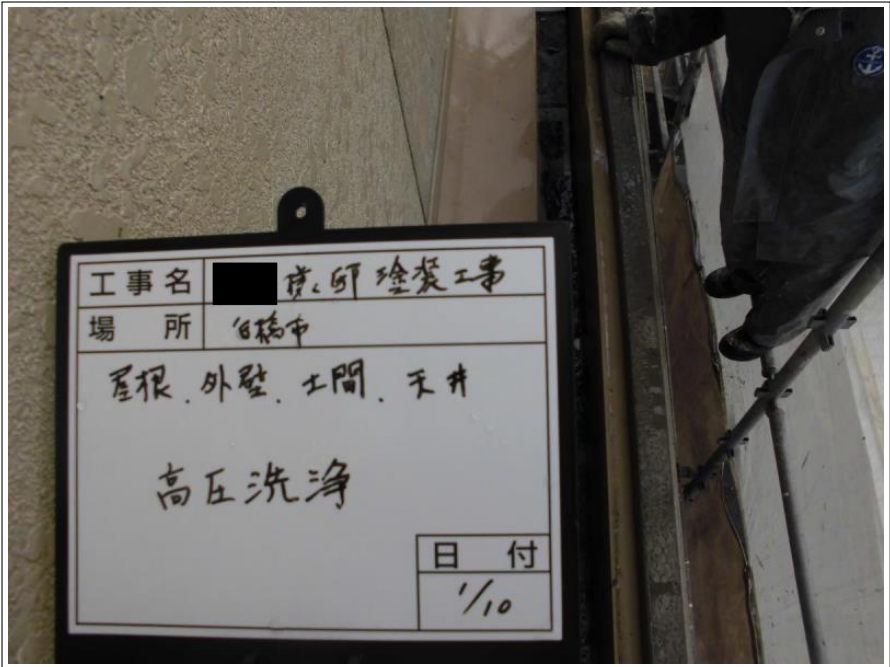 工事名 様邸 塗装工事
場所 白橋市
屋根.外壁.土間.天井
高圧洗浄
日付
1/10